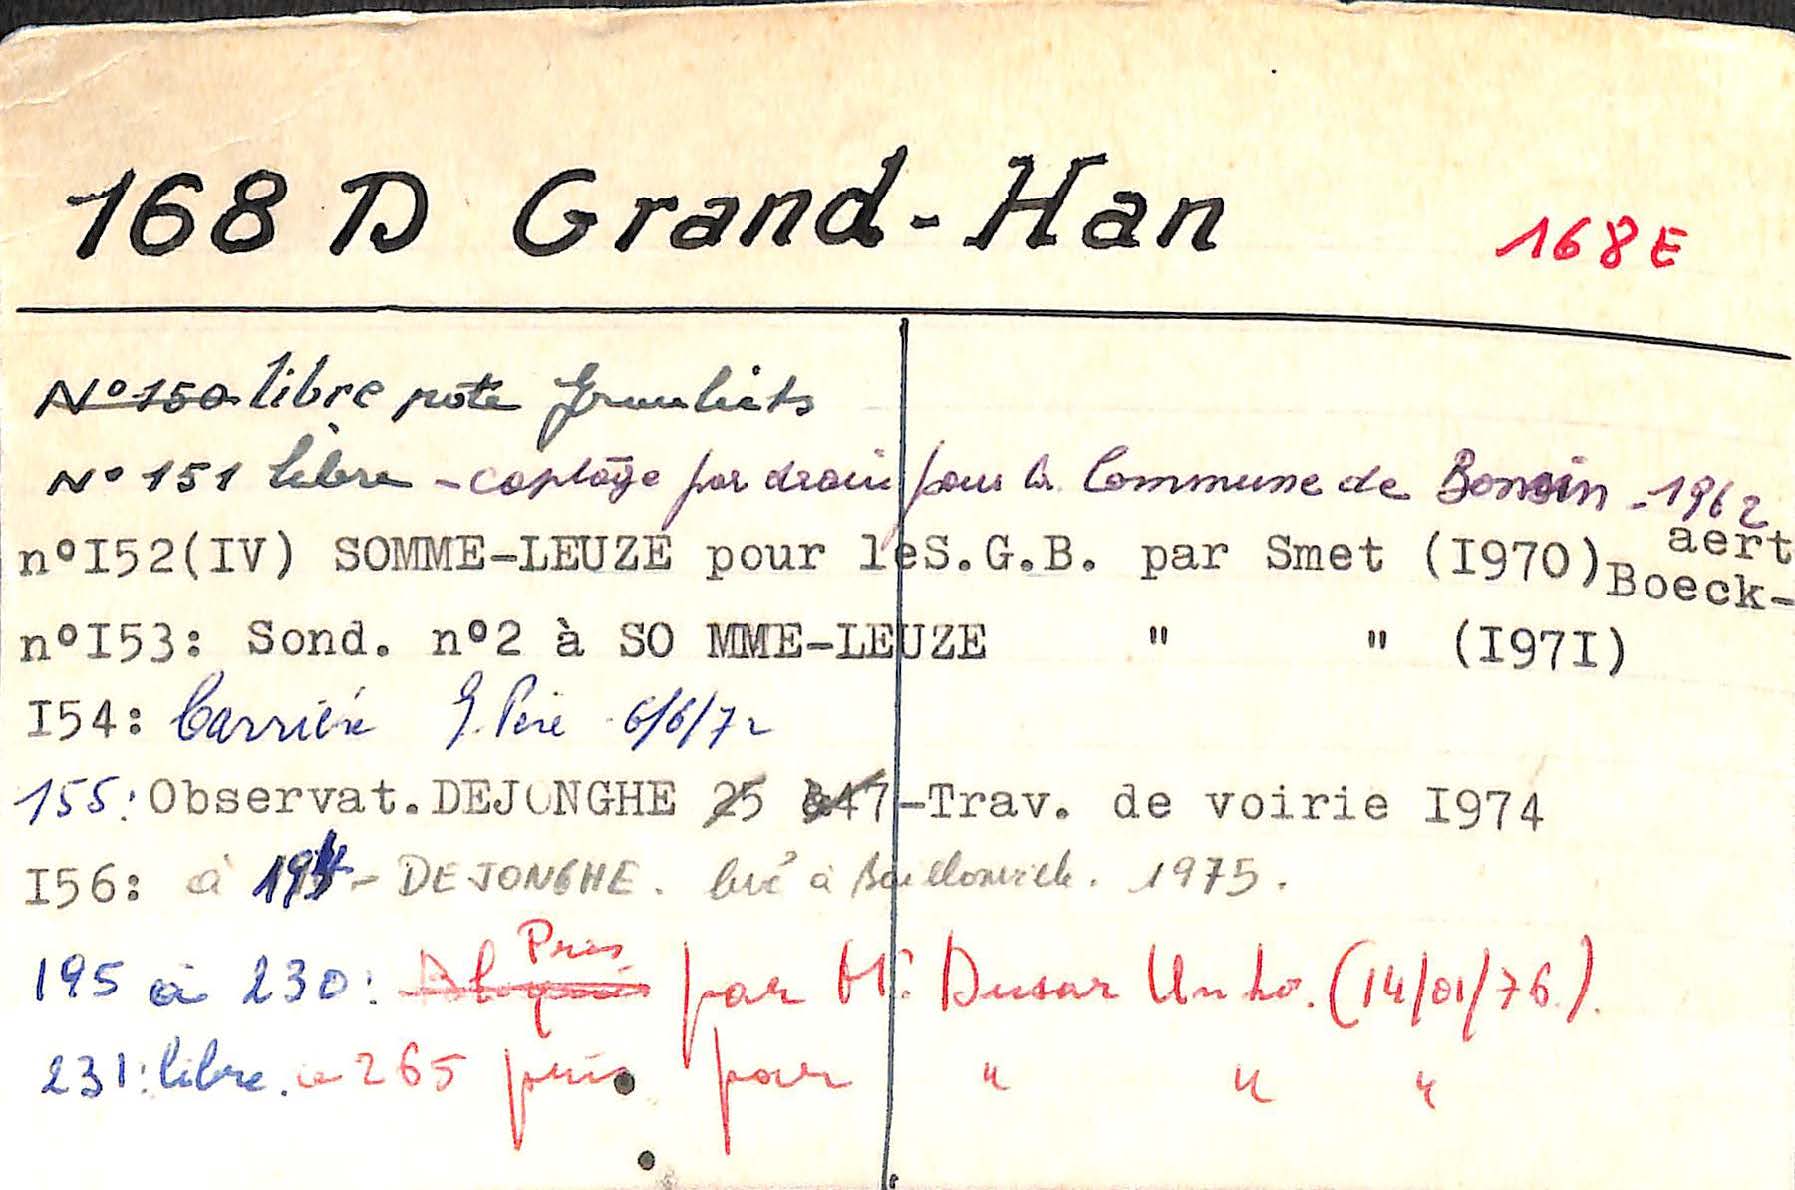 168 D Grand-Han 168E
N° 150 libre note
N° 151 libre - captage par drain pour la Commune de Bonsin - 1962
n°I52(IV) SOMME-LEUZE pour leS.G.B. par Smet (I970) Boeck-aert
n°I53: Sond. n°2 à SO MME-LEUZE " " (I97I)
I54: Carrière G. Père 6/6/72
155: Observat. DEJONGHE 25 à47-Trav. de voirie I974
I56: à 194 - DEJONGHE. levé à Baillonville. 1975.
195 à 230: Pris par Mr. Dusar Un Lo. (14/01/76).
231: libre. à 265 pris par " " "